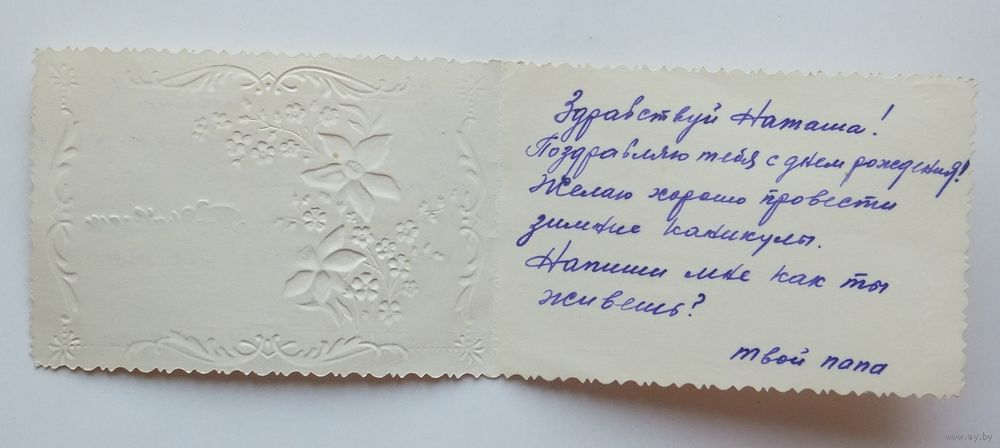 Здравствуй Наташа!
Поздравляю тебя с днем рождения!
Желаю хорошо провести
зимние каникулы.
Напиши мне как ты
живешь?
твой папа
www.ay.by